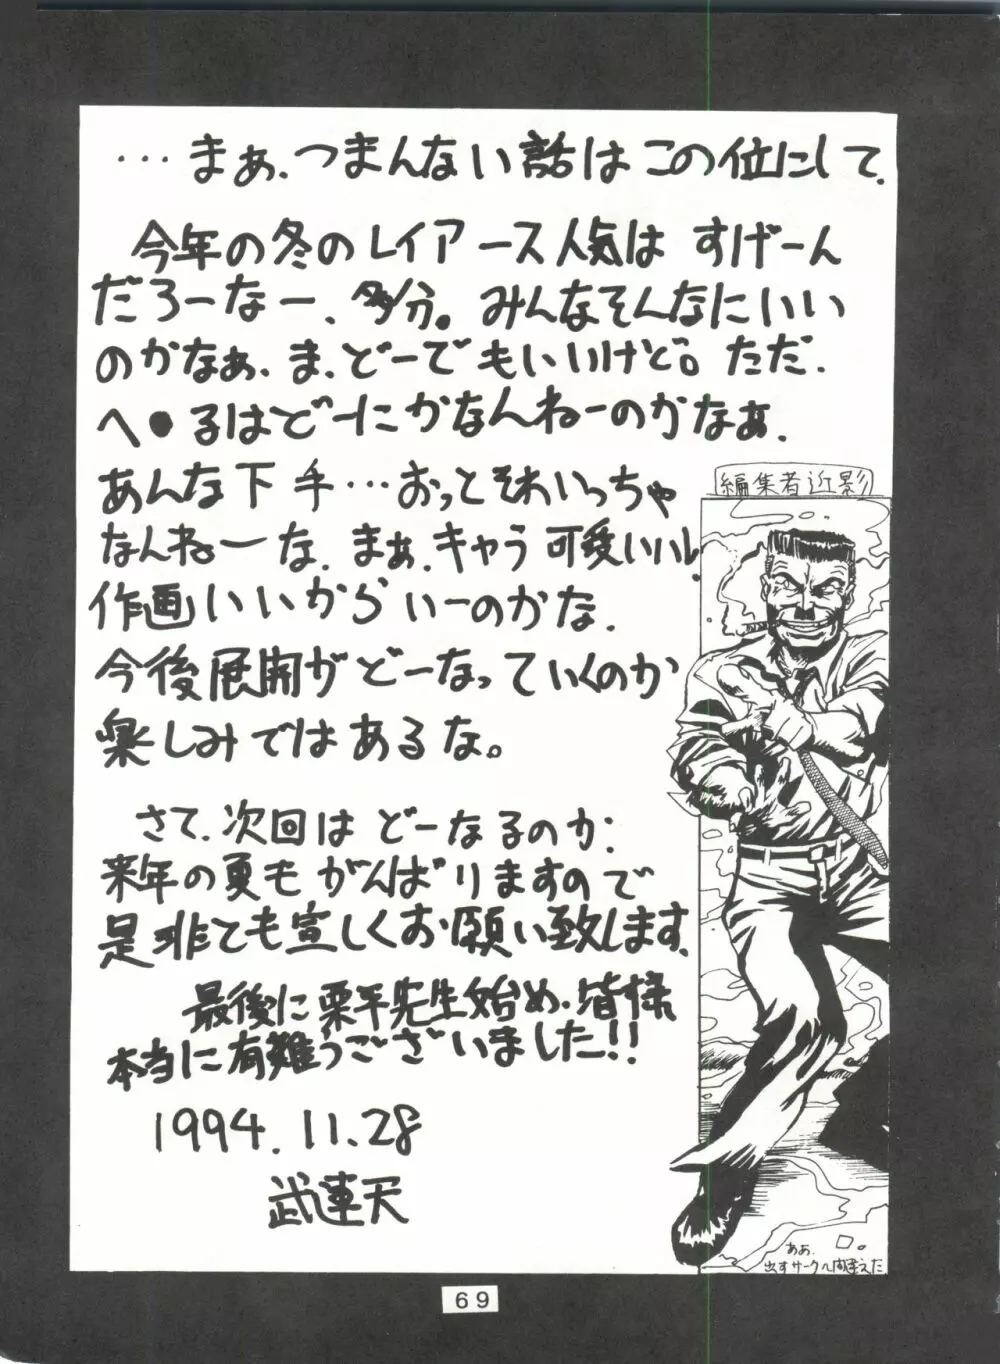 …まぁ、つまんない話はこの位にして、
今年の冬のレイアース人気はすげーん
だろーなー、多分。みんなそんなにいい
のかなぁ、ま、どーでもいいけど。ただ、
へ●るはどーにかなんねーのかなぁ、
あんな下手…おっとそれいっちゃ
なんねーな、まぁ、キャラ可愛いいし、
作画いいからいーのかな、
今後展開がどーなっていくのか
楽しみではあるな。
さて、次回はどーなるのか、
来年の夏もがんばりますので
是非とも宜しくお願い致します。
最後に栗平先生始め、皆様
本当に有難うございました!!
1994.11.28
武連天
編集者近影
ああ、
出すサークル間違えた
69